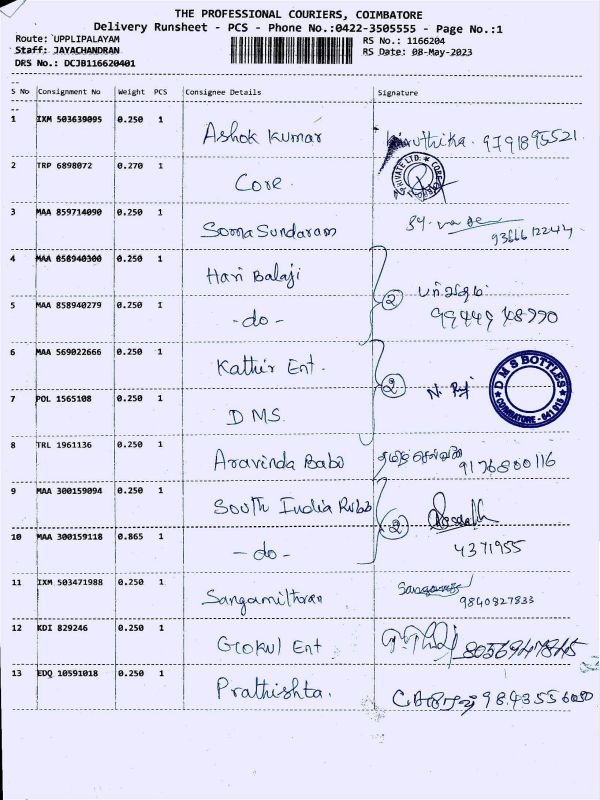 THE PROFESSIONAL COURIERS, COIMBATORE
Delivery Runsheet - PCS - Phone No.:0422-3505555 - Page No.:1
Route: UPPLIPALAYAM RS No.: 1166204
Staff: JAYACHANDRAN RS Date: 08-May-2023
DRS No.: DCJB116620401
S No Consignment No Weight PCS Consignee Details Signature
1 IXM 503639095 0.250 1 Ashok Kumar 9791895521
2 TRP 6898072 0.270 1 Core
3 MAA 859714090 0.250 1 SomaSundaram
4 MAA 858940300 0.250 1 Hari Balaji
5 MAA 858940279 0.250 1 -do- 2
6 MAA 569022666 0.250 1 Kathir Ent.
7 POL 1565108 0.250 1 DMS 2 DMS BOTTLES COIMBATORE - 641 015
8 TRL 1961136 0.250 1 Aravinda Babu 9176800116
9 MAA 300159094 0.250 1 South India Rubb
10 MAA 300159118 0.865 1 -do- 2 4371955
11 IXM 503471988 0.250 1 Sangamithran 9840827833
12 KDI 829246 0.250 1 Gokul Ent
13 EDQ 10591018 0.250 1 Prathishta.